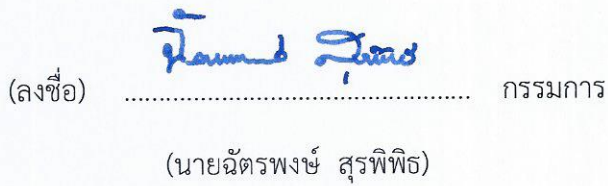 (ลงชื่อ) ........................................................ กรรมการ
(นายฉัตรพงษ์ สุรพิพิธ)